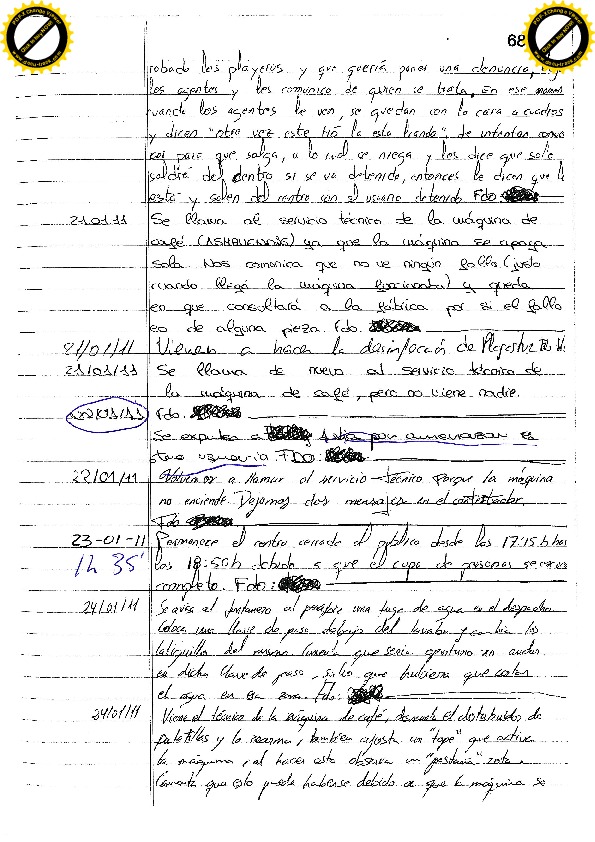 68
robado los playeros y que quería poner una denuncia,
los agentes y les comunico de quien se trata. En ese momen
cuando los agentes le ven, se quedan con la cara a cuadros
y dicen "otra vez este tío la está liando", de intentan conve
para que salga, a lo cual se niega y les dice que solo
saldrá del centro si se va detenido, entonces le dicen que lo
está y salen del centro con el usuario detenido. Fdo:
21.01.11 Se llama al servicio técnico de la máquina de
café ya que la máquina se apaga
sola. Nos comunica que no ve ningún fallo (justo
cuando llegó la máquina funcionaba) y queda
en que consultará a la fábrica por si el fallo
es de alguna pieza. Fdo.
21/01/11 Vienen a hacer la desinfección de
21/01/11 Se llama de nuevo al servicio técnico de
la máquina de café, pero no viene nadie.
22/01/11 Fdo:
Se expulsa a 1 día por amenazar a
otra usuaria FDO:
22/01/11 Volvemos a llamar al servicio técnico porque la máquina
no enciende. Dejamos dos mensajes en el contestador.
Fdo
23-01-11 Permanece el centro cerrado al público desde las 17:15 h hasta
1h 35' las 18:50h debido a que el cupo de personas se
completo. Fdo:
24/01/11 Se avisa al fontanero al percibir una fuga de agua en el despacho
Coloca una llave de paso debajo del lavabo y cambia los
latiguillos del mismo. Comenta que sería oportuno
en dicha llave de paso, sin que hubiera que cortar
el agua en esa zona. Fdo:
24/01/11 Viene el técnico de la máquina de café, desmonta el distribuidor de
paletillas y lo rearma, también ajusta un "tope" que activa
la máquina, al hacer esto observa un "pestaña" rota.
Comenta que esto puede haberse debido a que la máquina se